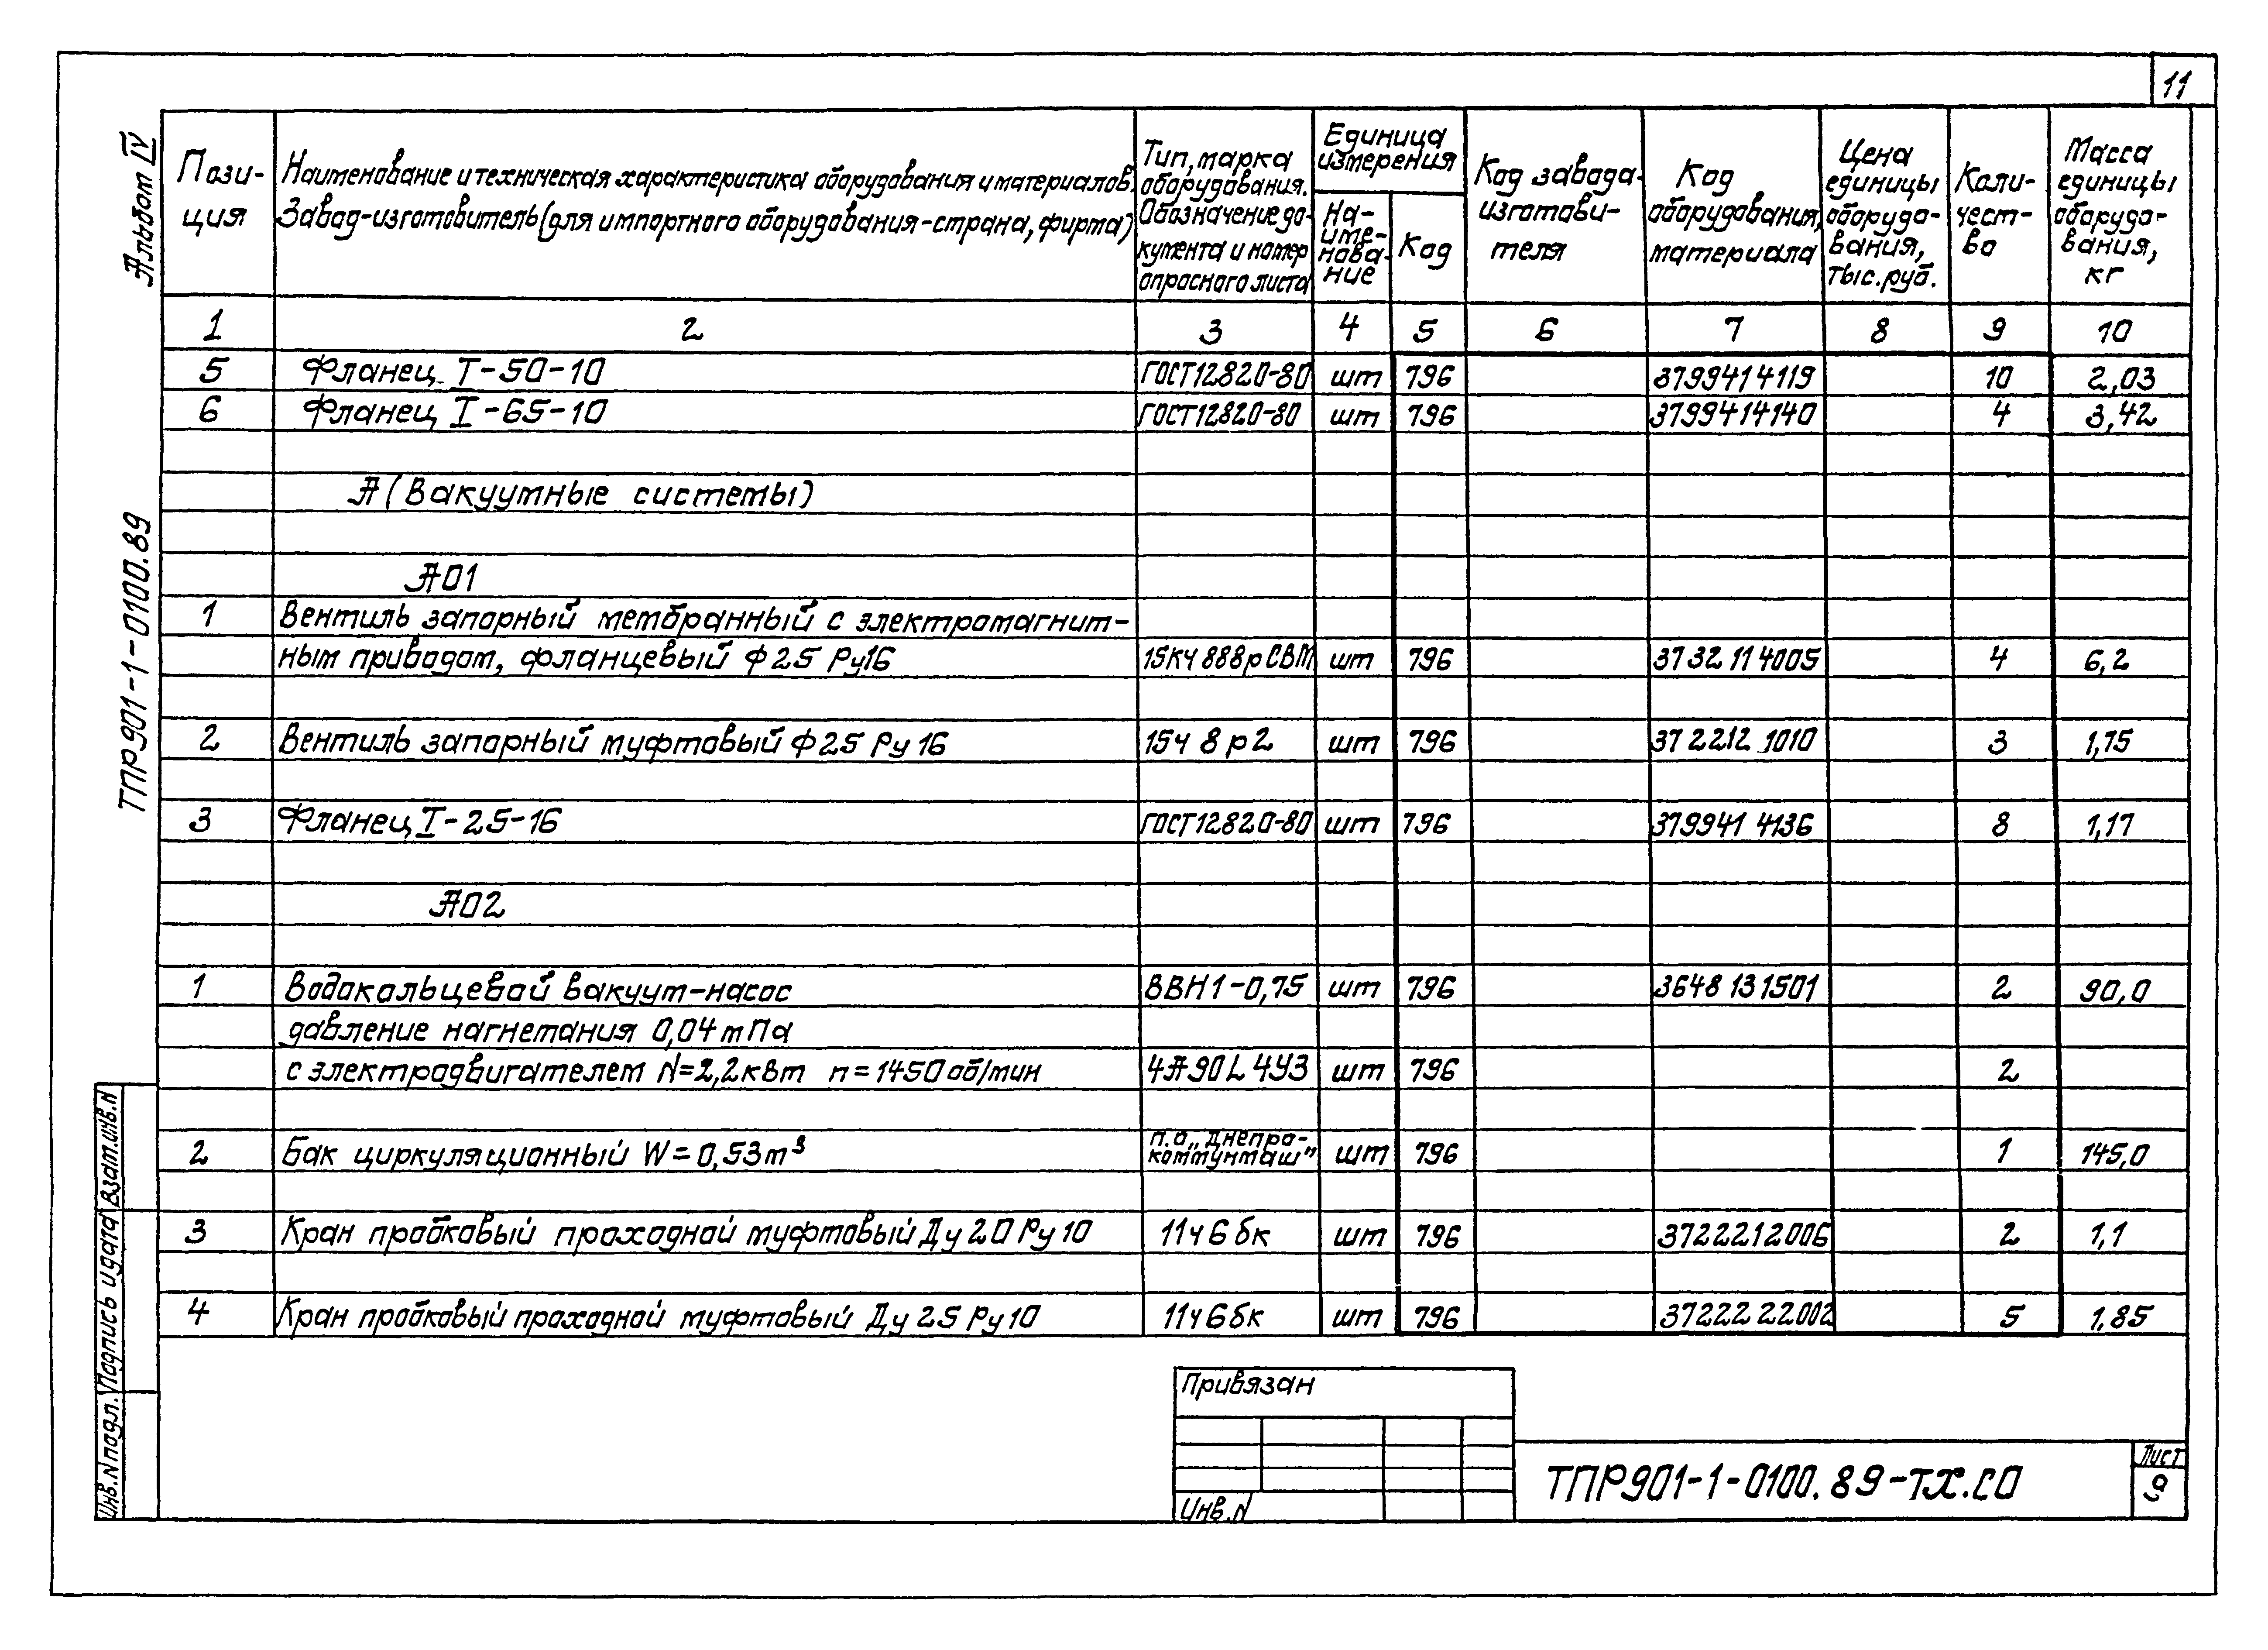 11
Альбом IV
ТПР901-1-0100.89
Пози-
ция
Наименование и техническая характеристика оборудования и материалов.
Завод-изготовитель (для импортного оборудования-страна, фирма)
Тип, марка
оборудования.
Обозначение до-
кумента и номер
опросного листа
Единица
измерения
На-
име-
нова-
ние
Код
Код завода-
изготови-
теля
Код
оборудования,
материала
Цена
единицы
оборудо-
вания,
тыс.руб.
Коли-
чест-
во
Масса
единицы
оборудо-
вания,
кг
1 2 3 4 5 6 7 8 9 10
5 Фланец I-50-10 ГОСТ12820-80 шт 796 3799414119 10 2,03
6 Фланец I-65-10 ГОСТ12820-80 шт 796 3799414140 4 3,42
А (Вакуумные системы)
А01
1 Вентиль запорный мембранный с электромагнит-
ным приводом, фланцевый Ф25 Ру16 15кч 888р СВМ шт 796 3732114005 4 6,2
2 Вентиль запорный муфтовый Ф25 Ру 16 15ч 8 р2 шт 796 37 2212 1010 3 1,75
3 Фланец I-25-16 ГОСТ12820-80 шт 796 379941 4136 8 1,17
А02
1 Водокольцевой вакуум-насос ВВН1-0,75 шт 796 3648 131501 2 90,0
давление нагнетания 0,04 мПа
с электродвигателем N=2,2квт n=1450 об/мин 4А90L4У3 шт 796 2
2 Бак циркуляционный W=0,53м³ п.о„Днепро-
коммунмаш" шт 796 1 145,0
3 Кран пробковый проходной муфтовый Ду 20 Ру 10 11ч 6 бк шт 796 3722212006 2 1,1
4 Кран пробковый проходной муфтовый Ду 25 Ру 10 11ч 6 бк шт 796 37222 22002 5 1,85
Инв.N подл. Подпись и дата Взам.инв.N
Привязан
Инв.N
ТПР901-1-0100.89-ТХ.СО
Лист
9